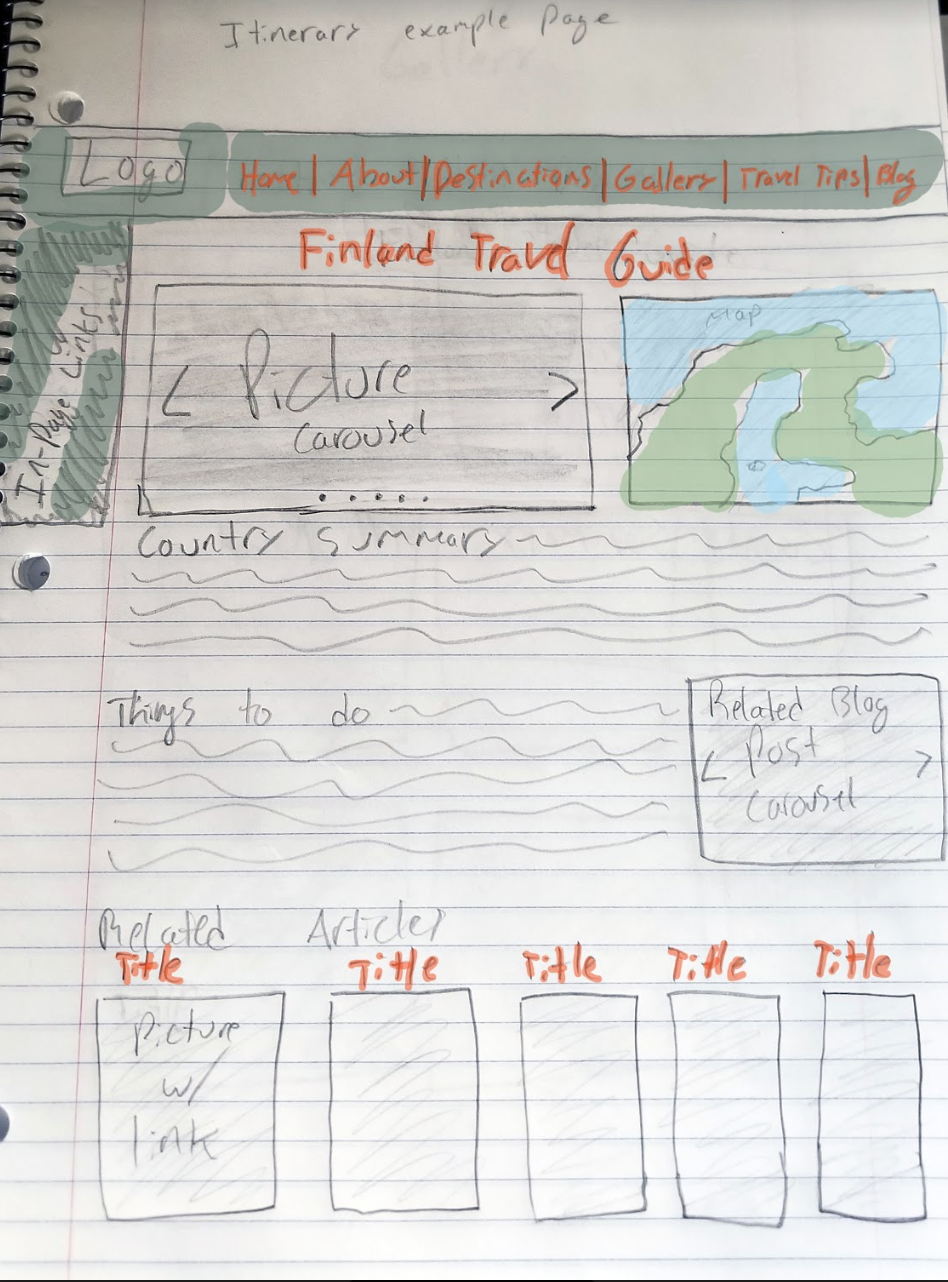 Itinerary example Page
Logo
Home | About | Destinations | Gallery | Travel Tips | Blog
Finland Travel Guide
In-Page Links
< Picture >
Carousel
Map
Country Summary
Things to do
Related Blog
< Post >
Carousel
Related Articles
Title Title Title Title Title
Picture
w/
link